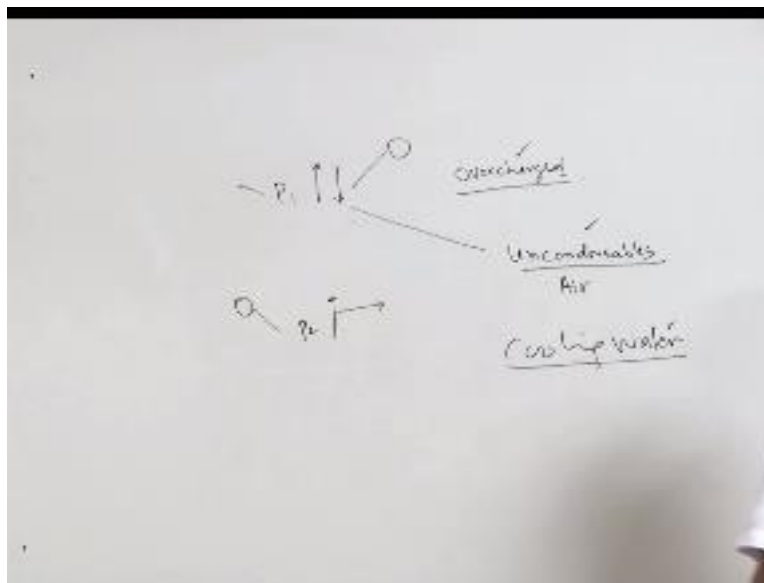 Overcharged
P1
Uncondensables
Air
P2
Cooling water